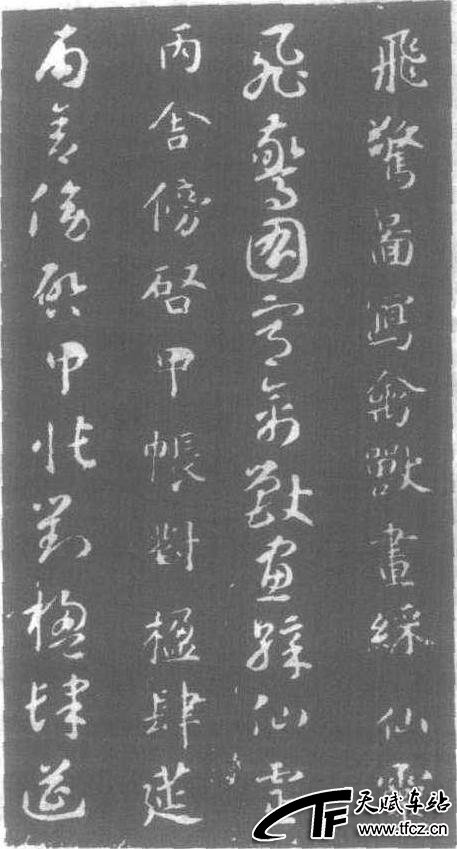 飛驚啚寫禽獸畫綵仙靈
飛驚圖寫禽獸畫綵仙靈
丙舍傍啓甲帳對楹肆莚
丙舍傍啓甲帳對楹肆莚
天赋车站
www.tfcz.cn